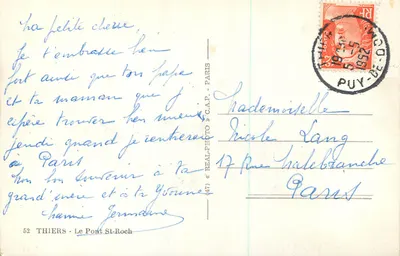 Ma petite chérie,
Je t'embrasse bien
fort ainsi que ton papa
et ta maman que j'
espère trouver bien mieux
jeudi quand je rentrerai
à Paris
Mon bon souvenir à ta
grand'mère et à ta Yvonne
Germaine
52 THIERS - Le Pont St-Roch
(47) REAL-PHOTO C.A.P. - PARIS
RF
THIERS
19
5-5
1952
PUY-DE-D
Mademoiselle
Nicole Lang
17 Rue Malebranche
Paris